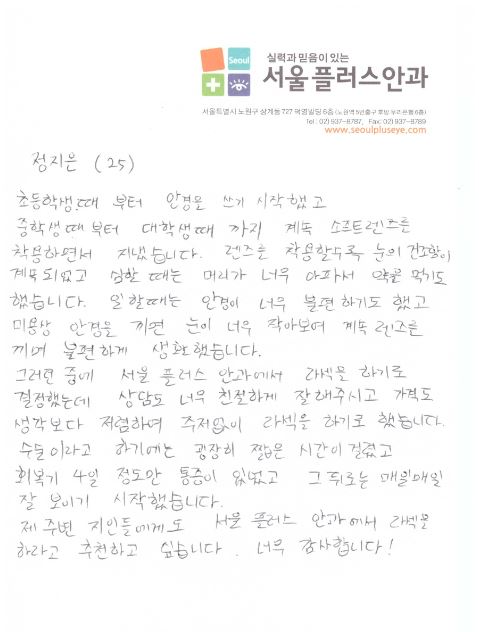 Seoul
실력과 믿음이 있는
서울플러스안과
서울특별시 노원구 상계동 727 덕영빌딩 6층 (노원역 5번출구 후방 우리은행 6층)
Tel : 02) 937-8787, Fax: 02) 937-8789
www.seoulpluseye.com
정지은 (25)
초등학생때 부터 안경을 쓰기 시작했고
중학생때부터 대학생때 까지 계속 소프트렌즈를
착용하면서 지냈습니다. 렌즈를 착용할수록 눈의 건조함이
계속되었고 심할 때는 머리가 너무 아파서 약을 먹기도
했습니다. 일할때는 안경이 너무 불편하기도 했고
미용상 안경을 끼면 눈이 너무 작아보여 계속 렌즈를
끼며 불편하게 생활했습니다.
그러던 중에 서울 플러스 안과에서 라섹을 하기로
결정했는데 상담도 너무 친절하게 잘해주시고 가격도
생각보다 저렴하여 주저없이 라섹을 하기로 했습니다.
수술이라고 하기에는 굉장히 짧은 시간이 걸렸고
회복기 4일 정도만 통증이 있었고 그 뒤로는 매일매일
잘 보이기 시작했습니다.
제 주변 지인들에게도 서울 플러스 안과에서 라섹을
하라고 추천하고 싶습니다. 너무 감사합니다!